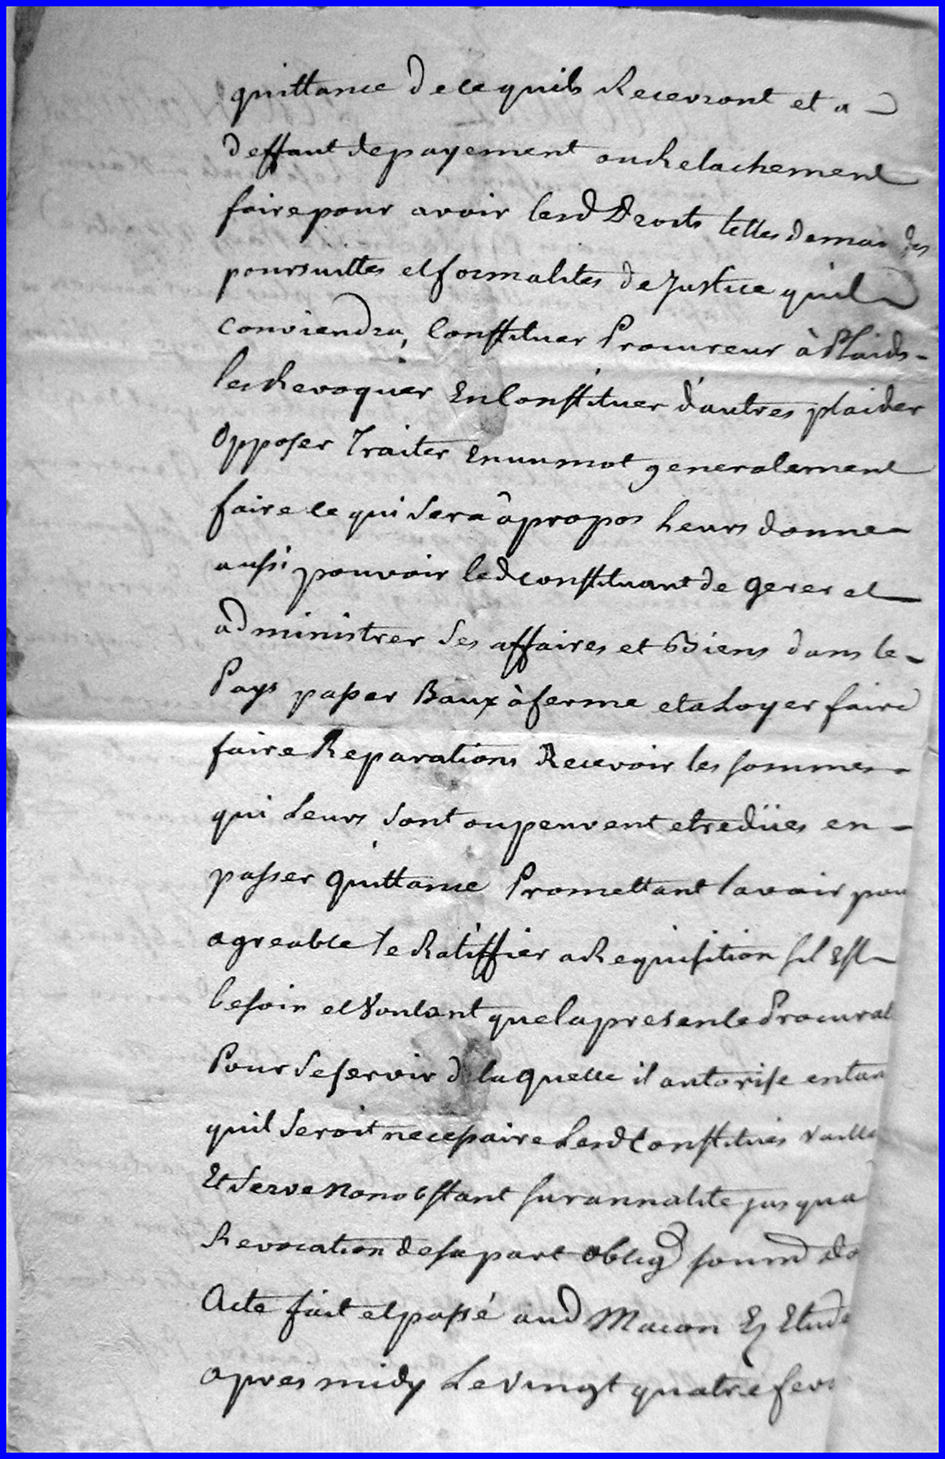 quittance de ce quils Recevront et a
deffaut depayement ou Relachement
faire pour avoir lesd Droits telles deman des
poursuittes et formalites de Justice quil
Conviendra, Constituer Procureur à Plaids
les Revoquer En Constituer d'autres plaider
Opposer Traiter en un mot generalement
faire ce qui sera à propos leurs donne
aussi pouvoir led constituant de gerer et
administrer ses affaires et Biens dans le
Pays passer Baux à ferme et a Loyer faire
faire Reparations Recevoir les sommes
qui Leurs sont ou peuvent etre dües en
passer quittance Promettant lavoir pou
agreable le Ratiffier a Requisition sil Est
besoin et Voulant que la presente Procurat
Pour se servir de laquelle il autorise entan
quil seroit necessaire Lesd Constitués vaille
Et Serve nonobstant surannalité jusqua
Revocation de sa part oblig soumd do
Acte fait et passé aud Macon Ez Etude
apres midy Le vingt quatre fevr